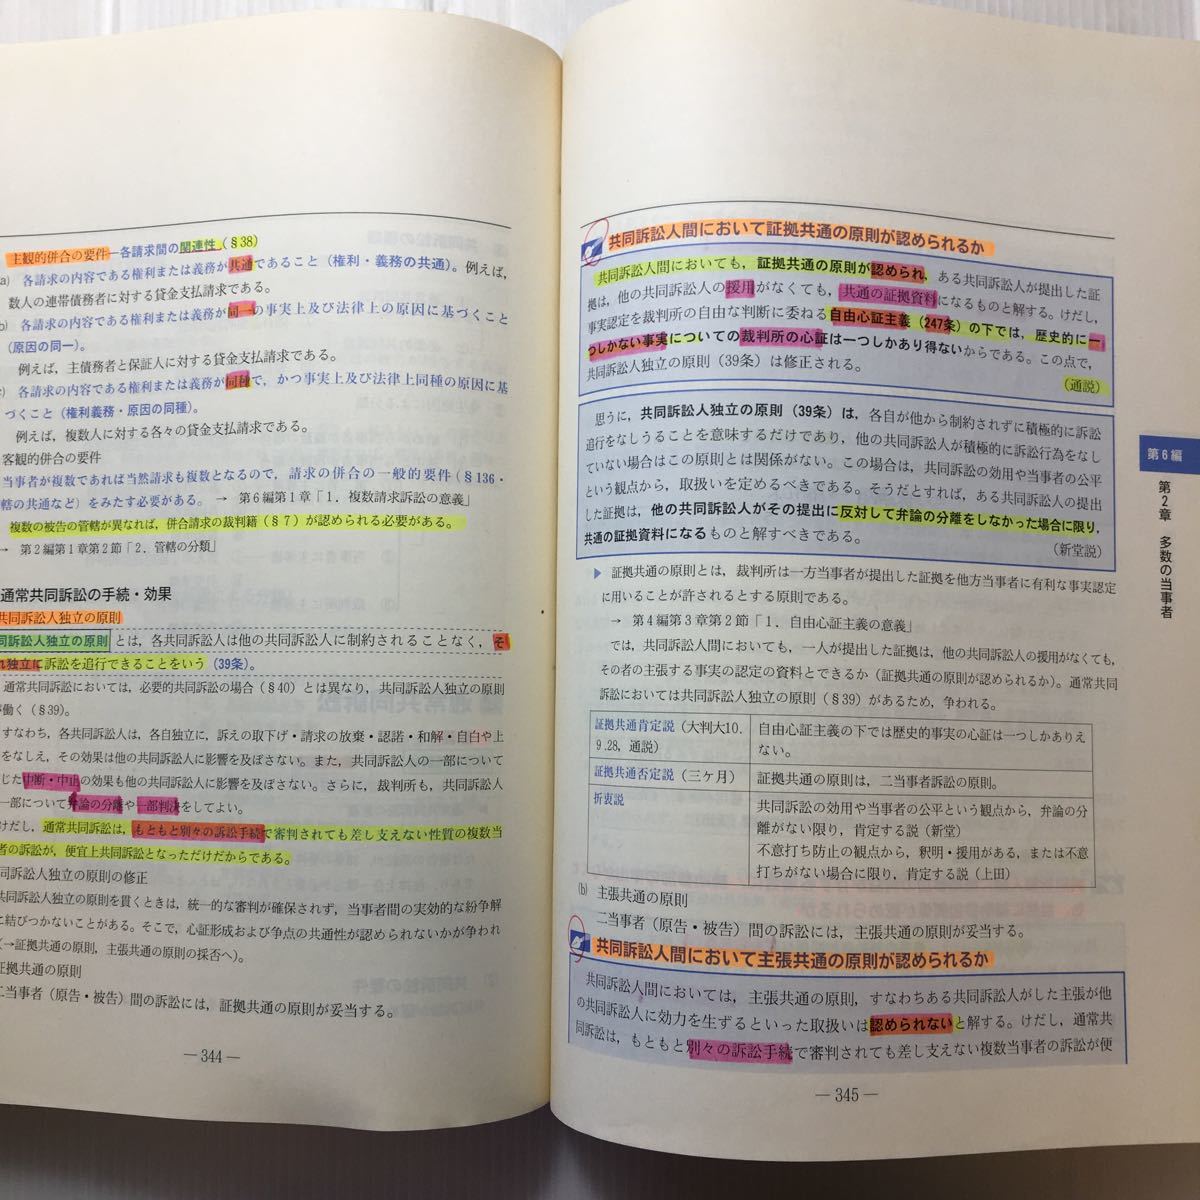 主観的併合の要件―各請求間の関連性(§38)
a) 各請求の内容である権利または義務が共通であること(権利・義務の共通)。例えば,
数人の連帯債務者に対する貸金支払請求である。
b) 各請求の内容である権利または義務が同一の事実上及び法律上の原因に基づくこと
(原因の同一)。
例えば,主債務者と保証人に対する貸金支払請求である。
c) 各請求の内容である権利または義務が同種で,かつ事実上及び法律上同種の原因に基
づくこと(権利義務・原因の同種)。
例えば,複数人に対する各々の貸金支払請求である。
客観的併合の要件
当事者が複数であれば当然請求も複数となるので,請求の併合の一般的要件(§136・
轄の共通など)をみたす必要がある。→ 第6編第1章「1. 複数請求訴訟の意義」
複数の被告の管轄が異なれば,併合請求の裁判籍(§7)が認められる必要がある。
→ 第2編第1章第2節「2. 管轄の分類」
通常共同訴訟の手続・効果
共同訴訟人独立の原則
同訴訟人独立の原則とは,各共同訴訟人は他の共同訴訟人に制約されることなく,そ
れ独立に訴訟を追行できることをいう(39条)。
通常共同訴訟においては,必要的共同訴訟の場合(§40)とは異なり,共同訴訟人独立の原則
が働く(§39)。
すなわち,各共同訴訟人は,各自独立に,訴えの取下げ・請求の放棄・認諾・和解・自白や上
をなしえ,その効果は他の共同訴訟人に影響を及ぼさない。また,共同訴訟人の一部について
じた中断・中止の効果も他の共同訴訟人に影響を及ぼさない。さらに,裁判所も,共同訴訟人
一部について弁論の分離や一部判決をしてよい。
けだし,通常共同訴訟は,もともと別々の訴訟手続で審判されても差し支えない性質の複数当
者の訴訟が,便宜上共同訴訟となっただけだからである。
同訴訟人独立の原則の修正
共同訴訟人独立の原則を貫くときは,統一的な審判が確保されず,当事者間の実効的な紛争解
に結びつかないことがある。そこで,心証形成および争点の共通性が認められないかが争われ
(→証拠共通の原則,主張共通の原則の採否へ)。
証拠共通の原則
二当事者(原告・被告)間の訴訟には,証拠共通の原則が妥当する。
―344―
共同訴訟人間において証拠共通の原則が認められるか
共同訴訟人間においても,証拠共通の原則が認められ,ある共同訴訟人が提出した証
拠は,他の共同訴訟人の援用がなくても,共通の証拠資料になるものと解する。けだし,
事実認定を裁判所の自由な判断に委ねる自由心証主義(247条)の下では,歴史的に一
つしかない事実についての裁判所の心証は一つしかあり得ないからである。この点で,
共同訴訟人独立の原則(39条)は修正される。
(通説)
思うに,共同訴訟人独立の原則(39条)は,各自が他から制約されずに積極的に訴訟
追行をなしうることを意味するだけであり,他の共同訴訟人が積極的に訴訟行為をなし
ていない場合はこの原則とは関係がない。この場合は,共同訴訟の効用や当事者の公平
という観点から,取扱いを定めるべきである。そうだとすれば,ある共同訴訟人の提出
した証拠は,他の共同訴訟人がその提出に反対して弁論の分離をしなかった場合に限り,
共通の証拠資料になるものと解すべきである。
(新堂説)
▶ 証拠共通の原則とは,裁判所は一方当事者が提出した証拠を他方当事者に有利な事実認定
に用いることが許されるとする原則である。
→ 第4編第3章第2節「1. 自由心証主義の意義」
では,共同訴訟人間においても,一人が提出した証拠は,他の共同訴訟人の援用がなくても,
その者の主張する事実の認定の資料とできるか(証拠共通の原則が認められるか)。通常共同
訴訟においては共同訴訟人独立の原則(§39)があるため,争われる。
証拠共通肯定説(大判大10.
9.28,通説)
自由心証主義の下では歴史的事実の心証は一つしかありえ
ない。
証拠共通否定説(三ケ月)
証拠共通の原則は,二当事者訴訟の原則。
折衷説
共同訴訟の効用や当事者の公平という観点から,弁論の分
離がない限り,肯定する説(新堂)
不意打ち防止の観点から,釈明・援用がある,または不意
打ちがない場合に限り,肯定する説(上田)
(b) 主張共通の原則
二当事者(原告・被告)間の訴訟には,主張共通の原則が妥当する。
共同訴訟人間において主張共通の原則が認められるか
共同訴訟人間においては,主張共通の原則,すなわちある共同訴訟人がした主張が他
の共同訴訟人に効力を生ずるといった取扱いは認められないと解する。けだし,通常共
同訴訟は,もともと別々の訴訟手続で審判されても差し支えない複数当事者の訴訟が便
―345―
第6編
第2章 多数の当事者